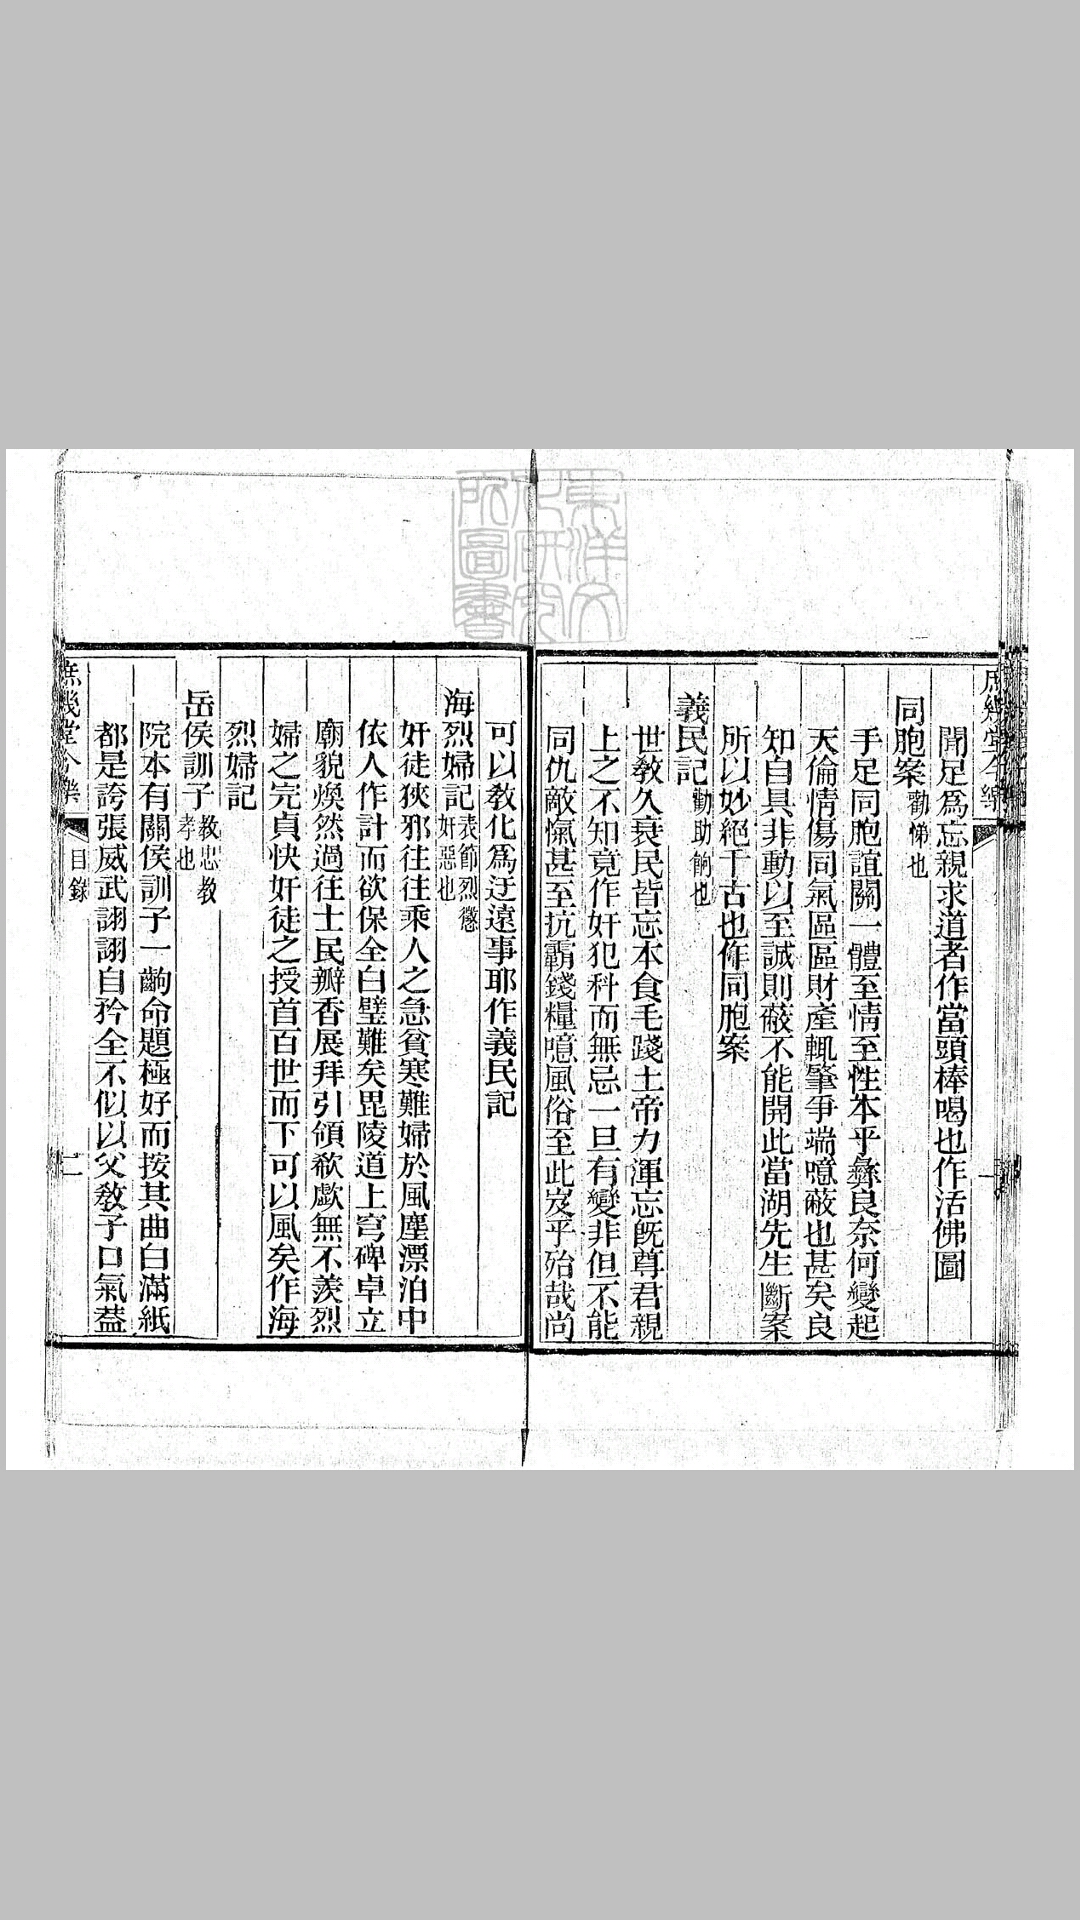 庶幾堂今樂
一
聞足爲忘親求道者作當頭棒喝也作活佛圖
同胞案勸悌也
手足同胞誼關一體至情至性本乎彝良奈何變起
天倫情傷同氣區區財產輒肇爭端噫蔽也甚矣良
知自具非動以至誠則蔽不能開此當湖先生斷案
所以妙絕千古也作同胞案
義民記勸助餉也
世教久衰民皆忘本食毛踐土帝力渾忘旣尊君親
上之不知竟作奸犯科而無忌一旦有變非但不能
同仇敵愾甚至抗霸錢糧噫風俗至此岌乎殆哉尚
可以敎化爲迂遠事耶作義民記
海烈婦記表節烈懲奸惡也
奸徒狹邪往往乘人之急貧寒難婦於風塵漂泊中
依人作計而欲保全白璧難矣毘陵道上穹碑卓立
廟貌煥然過往士民瓣香展拜引領欷歔無不羨烈
婦之完貞快奸徒之授首百世而下可以風矣作海
烈婦記
岳侯訓子教忠教孝也
院本有關侯訓子一齣命題極好而按其曲白滿紙
都是誇張威武詡詡自矜全不似以父敎子口氣葢
庶幾堂今樂
目錄
二
東洋文化研究所圖書